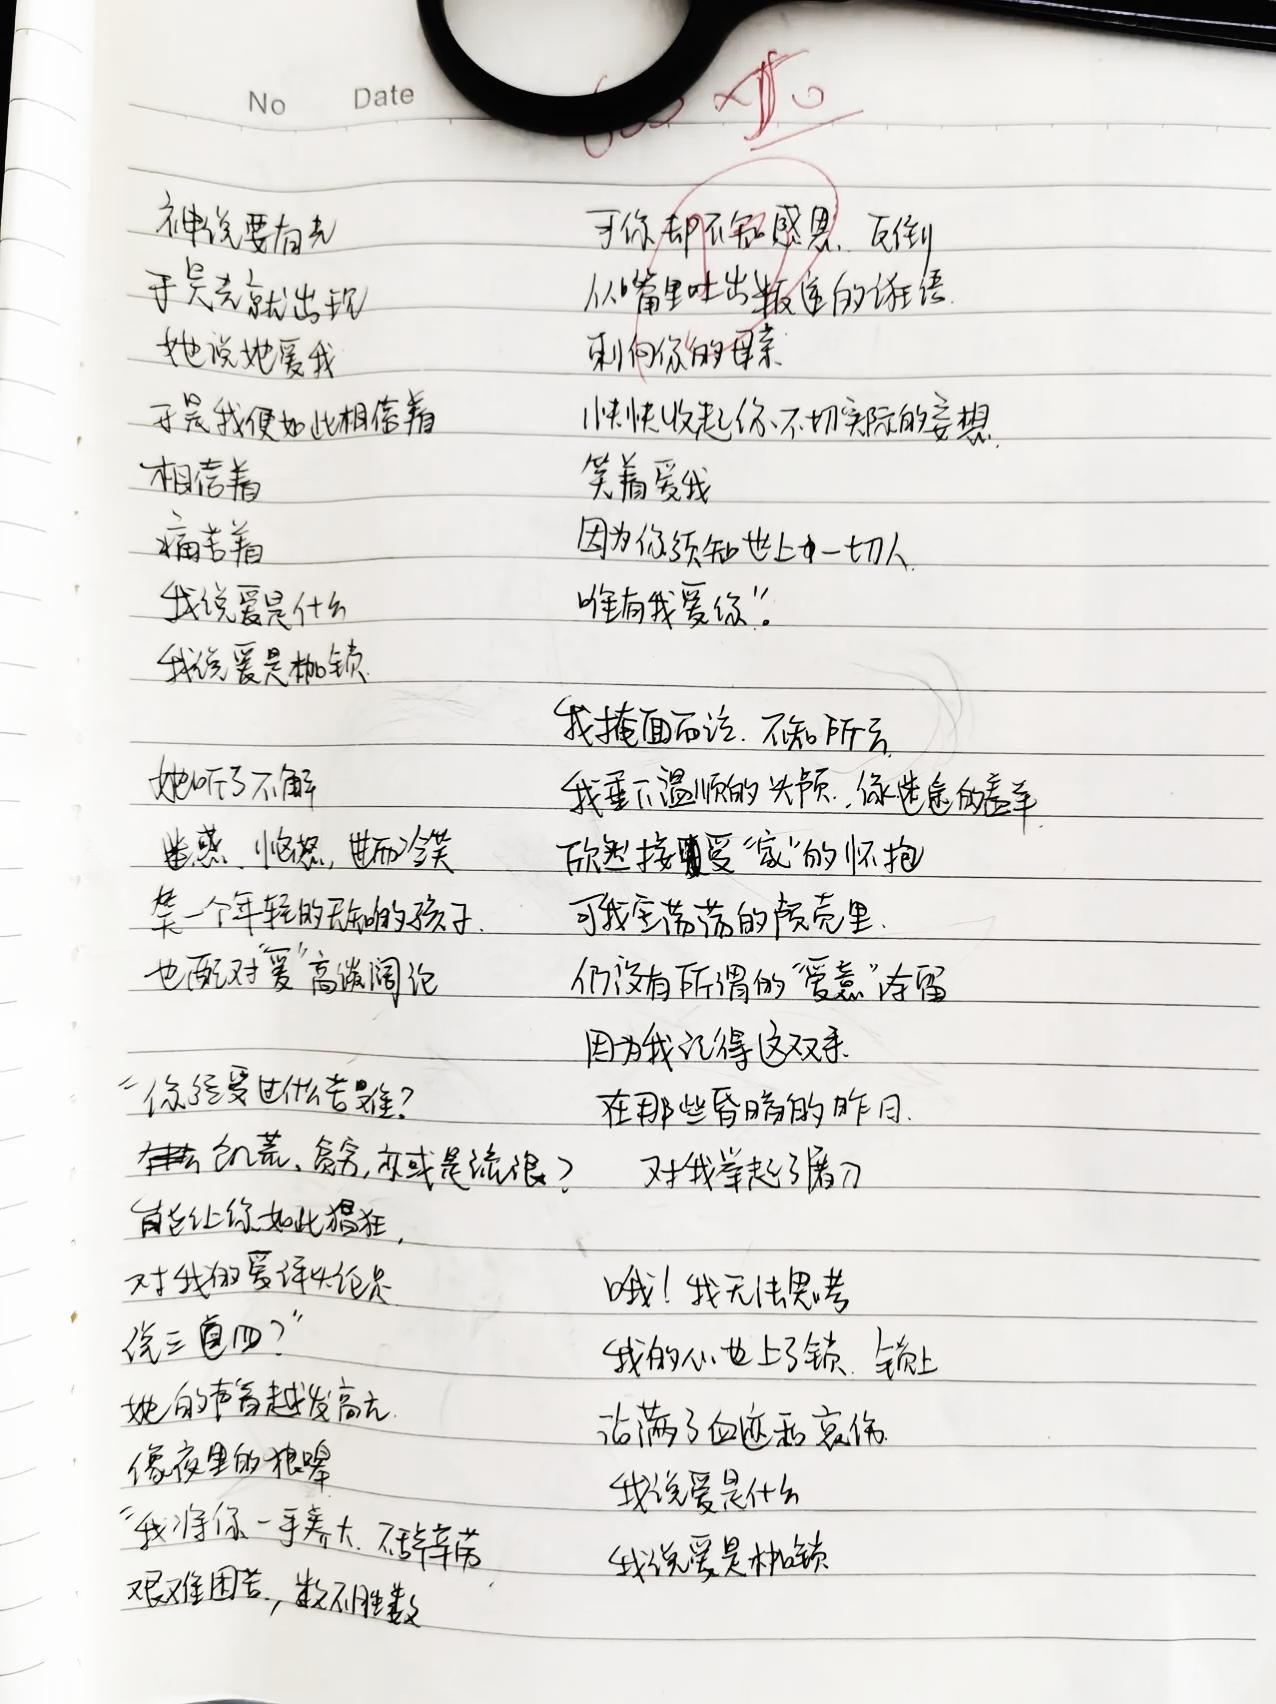 No Date
神说要有光
于是光就出现
她说她爱我
于是我便如此相信着
相信着
痛苦着
我说爱是什么
我说爱是枷锁
她听了不解
困惑、恼怒，进而冷笑
笑一个年轻的无知的孩子
也配对“爱”高谈阔论
“你经受过什么苦难？
饥荒、贫穷，亦或是流浪？
能让你如此猖狂，
对我的爱评头论足
说三道四？”
她的声音越发高亢
像夜里的狼嗥
“我将你一手养大、不辞辛劳
艰难困苦，数不胜数
可你却不知感恩、反倒
从嘴里吐出叛逆的诳语
刺向你的母亲
快快收起你不切实际的妄想
笑着爱我
因为你须知世上一切人
唯有我爱你”。
我掩面而泣、不知所云
我垂下温顺的头颅，像迷途的羔羊
欣然接受“家”的怀抱
可我空荡荡的颅壳里
仍没有所谓的“爱意”存留
因为我记得这双手
在那些昏暗的昨日
对我举起了屠刀
哦！我无法思考
我的心也上了锁、锁上
沾满了血迹和哀伤
我说爱是什么
我说爱是枷锁